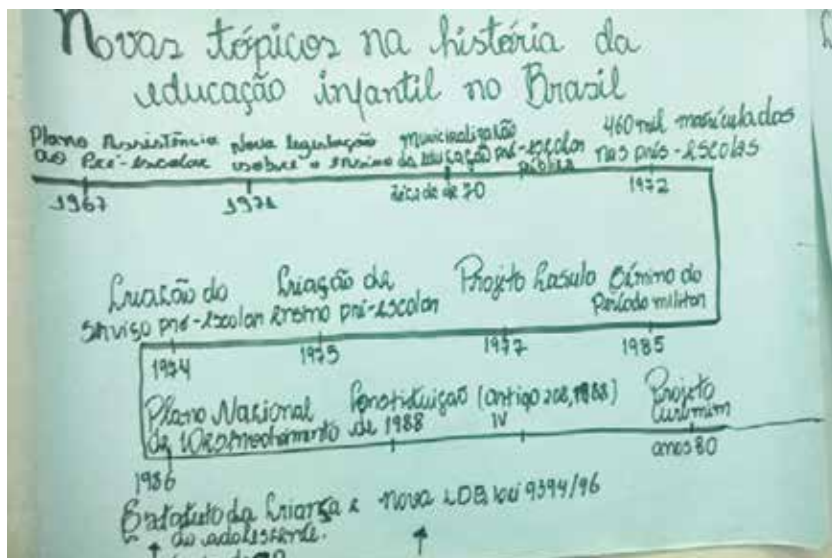 Novas tópicos na história da
educação infantil no Brasil
Plano Assistência
ao Pré-escolar
Nova legislação
sobre o ensino
municipalização
da educação pré-escolar
pública
460 mil matriculados
nas prés-escolas
1967
1971
década de 70
1972
Criação do
Serviço pré-escolar
Criação de
Ensino pré-escolar
Projeto Casulo
Término do
Período militar
1974
1975
1977
1985
Plano Nacional
de
Constituição
de 1988
(Artigo 208, 1988)
IV
Projeto
Curumim
1986
anos 80
Estatuto da Criança e
do adolescente.
nova LDB lei 9394/96